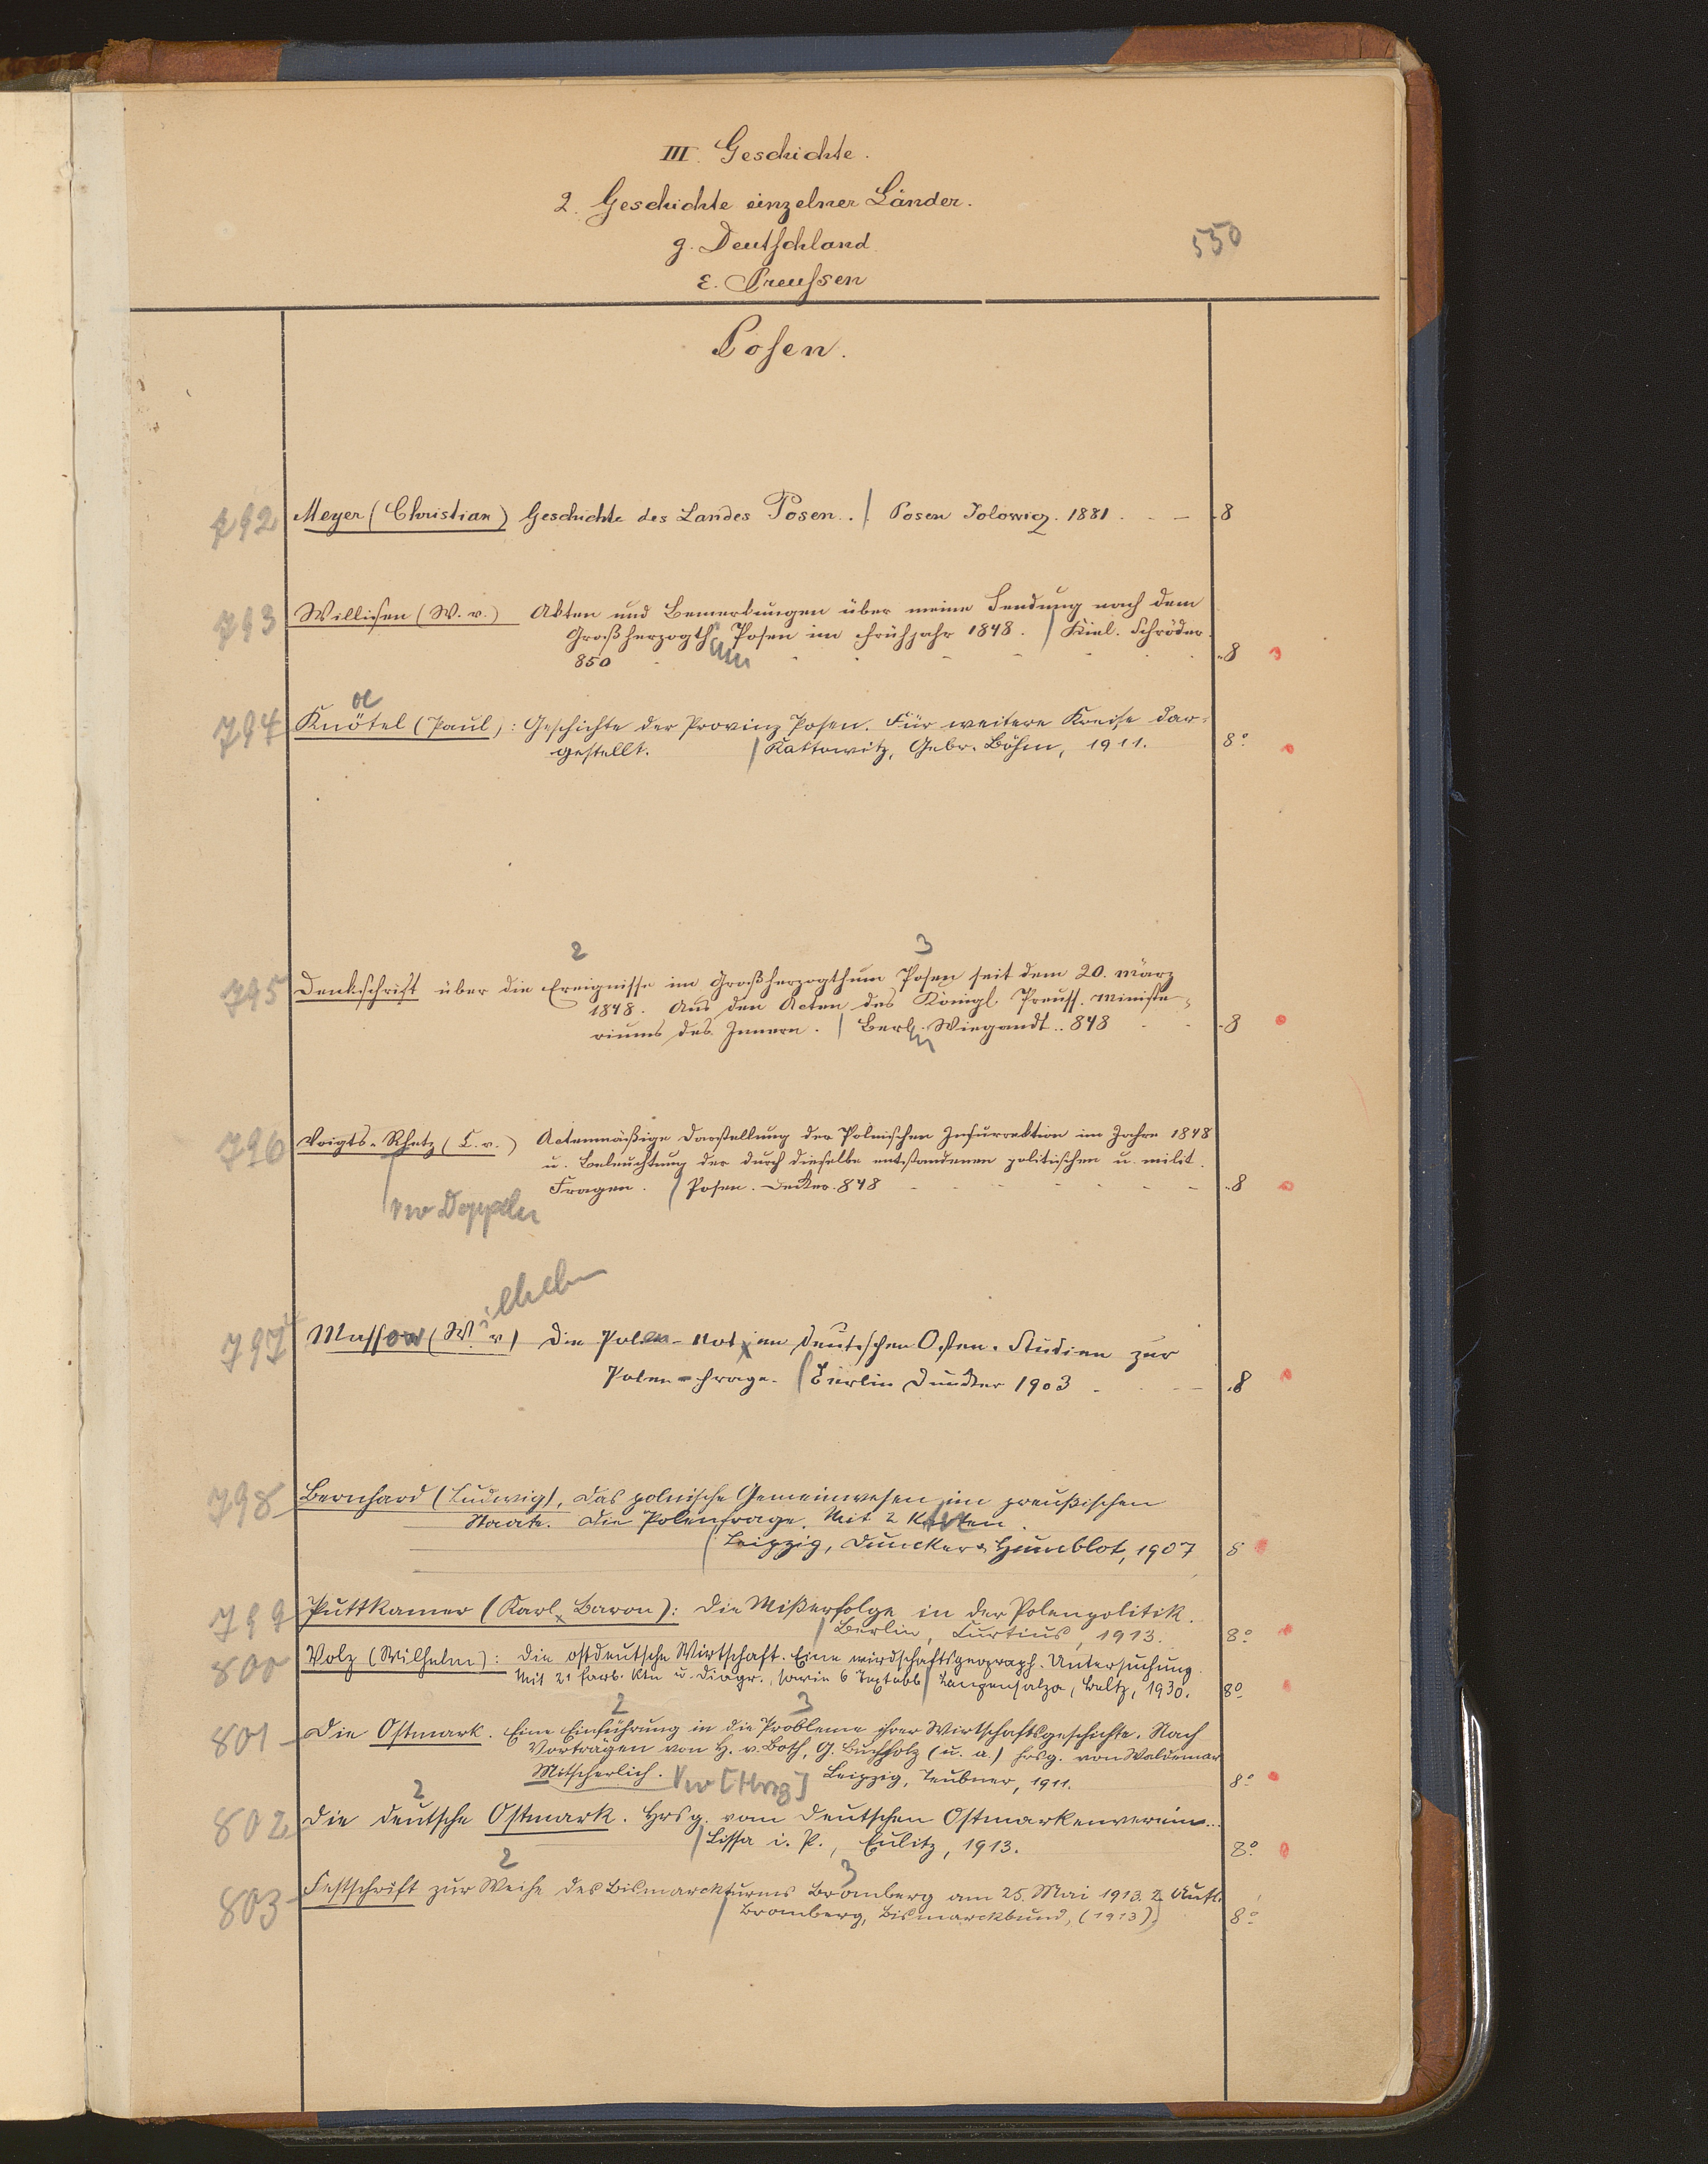 III. Geschichte.
2. Geschichte einzelner Länder.
g. Deutschland
550
ε. Preussen
Posen.
792 Meyer (Christian) Geschichte des Landes Posen. / Posen Jolowicz. 1881. 8
793 Willisen (W. v.) Akten und Bemerkungen über meine Sendung nach dem
Großherzogth. Posen im Frühjahr 1848. / Kiel. Schröder.
um
850 8
oe
794 Knötel (Paul): Geschichte der Provinz Posen. Für weitere Kreise dar-
gestellt. / Kattowitz, Gebr. Böhm, 1911. 8°
2 3
795 Denkschrift über die Ereignisse im Großherzogthum Posen seit dem 20. März
1848. Aus den Acten des Königl. Preuss. Ministe-
riums des Innern. / Berl. Wiegandt. 848 8
in
796 Voigts-Rhetz (C. v.) Actenmäßige Darstellung der Polnischen Insurrektion im Jahre 1848
u. Beleuchtung der durch dieselbe entstandenen politischen u. milit.
Fragen. / Posen. Decker. 848 8
vw Doppeln
ilhelm
797 Massow (W. v.) Die Polen-Not im deutschen Osten. Studien zur
Polen-Frage. / Berlin Duncker 1903 8
798 Bernhard (Ludwig), Das polnische Gemeinwesen im preußischen
Staate. Die Polenfrage. Mit 2 Karten.
/ Leipzig, Duncker & Humblot, 1907 8
799 Puttkamer (Karl, Baron): Die Mißerfolge in der Polenpolitik.
/ Berlin, Curtius, 1913. 8°
800 Volz (Wilhelm): Die ostdeutsche Wirtschaft. Eine wirdschaftsgeograph. Untersuchung.
Mit 21 farb. Ktn u. Diagr., sowie 6 Textabb / Langensalza, Beltz, 1930. 8°
2 3
801 Die Ostmark. Eine Einführung in die Probleme ihrer Wirtschaftsgeschichte. Nach
Vorträgen von H. v. Both, G. Buchholz (u. a.) hrsg. von Waldemar
Mitscherlich. / vw [Hrsg] Leipzig, Teubner, 1911. 8°
2
802 Die deutsche Ostmark. Hrsg. vom Deutschen Ostmarkenverein...
/ Lissa i. P., Eulitz, 1913. 8°
2 3
803 Festschrift zur Weihe des Bismarckturms Bromberg am 25. Mai 1913. 2. Aufl.
/ Bromberg, Bismarckbund, (1913). 8°